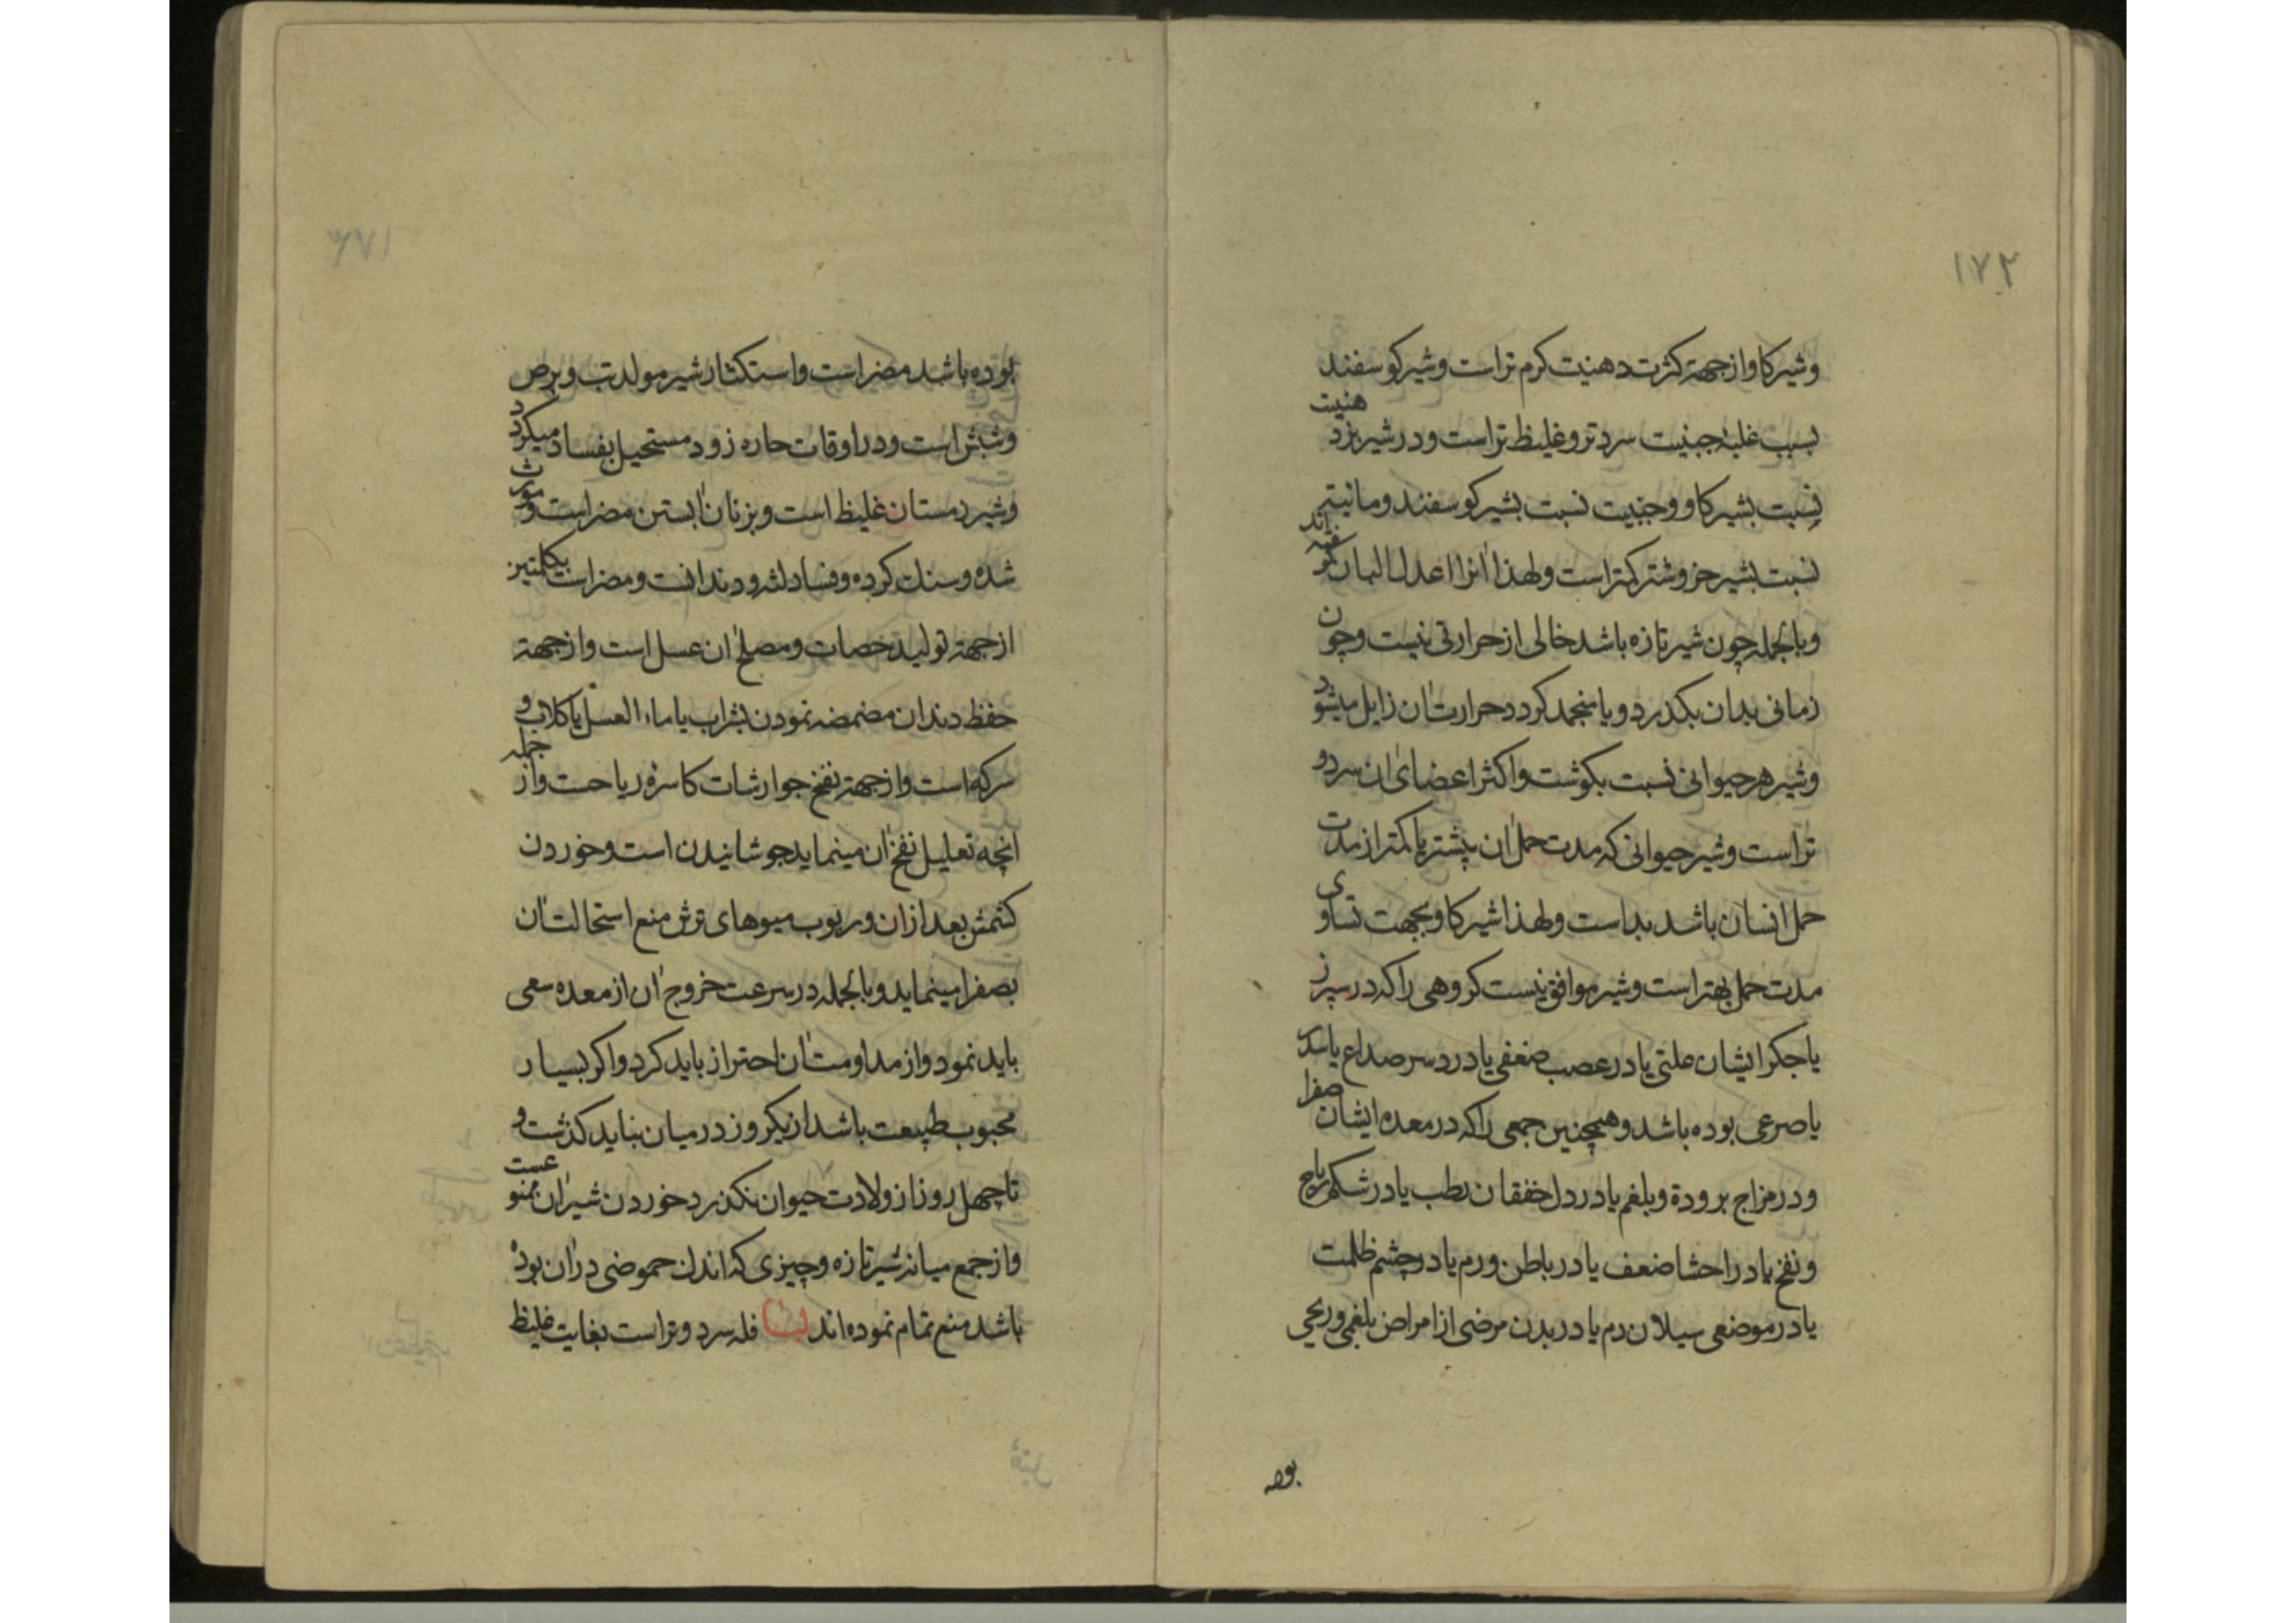 ١٧٢
وشیر کاو از جهة کثرت دهنیت کرم تر است وشیر کوسفند
بسبب غلبهٔ جبنیت سردتر و غلیظ تر است ودر شیر بز دهنیت
نسبت بشیر کاو وجبنیت نسبت بشیر کوسفند ومائیتی
نسبت بشیر خر وشتر کمتر است ولهذا آنرا اعدل البان کفته‌اند
وبالجمله چون شیر تازه باشد خالی از حرارتی نیست وچون
زمانی بدان بکذرد ویا منجمد کردد حرارت آن زایل میشود
وشیر هر حیوانی نسبت بکوشت واکثر اعضای آن سرد و
تر است وشیر حیوانی که مدت حمل آن بیشتر یا کمتر از مدت
حمل انسان باشد بد است ولهذا شیر کاو بجهت تساوی
مدت حمل بهتر است وشیر موافق نیست کروهی را که در سپرز
یا جکر ایشان علتی یا در عصب ضعفی یا در سر صداع یا سدر
یا صرعی بوده باشد وهمچنین جمعی را که در معده ایشان صفرا
ودر مزاج برودة وبلغم یا در دل خفقان رطب یا در شکم ریاح
ونفخ یا در احشا ضعف یا در باطن ورم یا در چشم ظلمت
یا در موضعی سیلان دم یا در بدن مرضی از امراض بلغمی وریحی
بوده
١٧٣
بوده باشد مضر است واستکثار شیر مولد تب وبرص
وشبش است ودر اوقات حاره زود مستحیل بفساد میکردد
وشیر دمستان غلیظ است وبزنان آبستن مضر است ومورث
سده وسنك کرده وفساد لثه ودندانست ومضر است بکلیتین
از جهة تولید حصات ومصلح آن عسل است واز جهة
حفظ دندان مضمضه نمودن بشراب یا ماء العسل یا کلاب و
سرکه است واز جهة نفخ جوارشات کاسرهٔ ریاحست واز جمله
انچه تعلیل نفخ آن مینماید جوشانیدن است وخوردن
کشمش بعد از آن وربوب میوهای ترش منع استحالت آن
بصفرا مینماید وبالجمله در سرعت خروج آن از معده سعی
باید نمود واز مداومت آن احتراز باید کرد واکر بسیار
محبوب طبیعت باشد از یکروز در میان نباید کذشت و
تا چهل روز از ولادت حیوان نکذرد خوردن شیر آن ممنوعست
واز جمع میانه شیر تازه وچیزی که اندك حموضی در آن بوده
باشد منع تمام نموده اند لبا فله سرد وتر است بغایت غلیظ